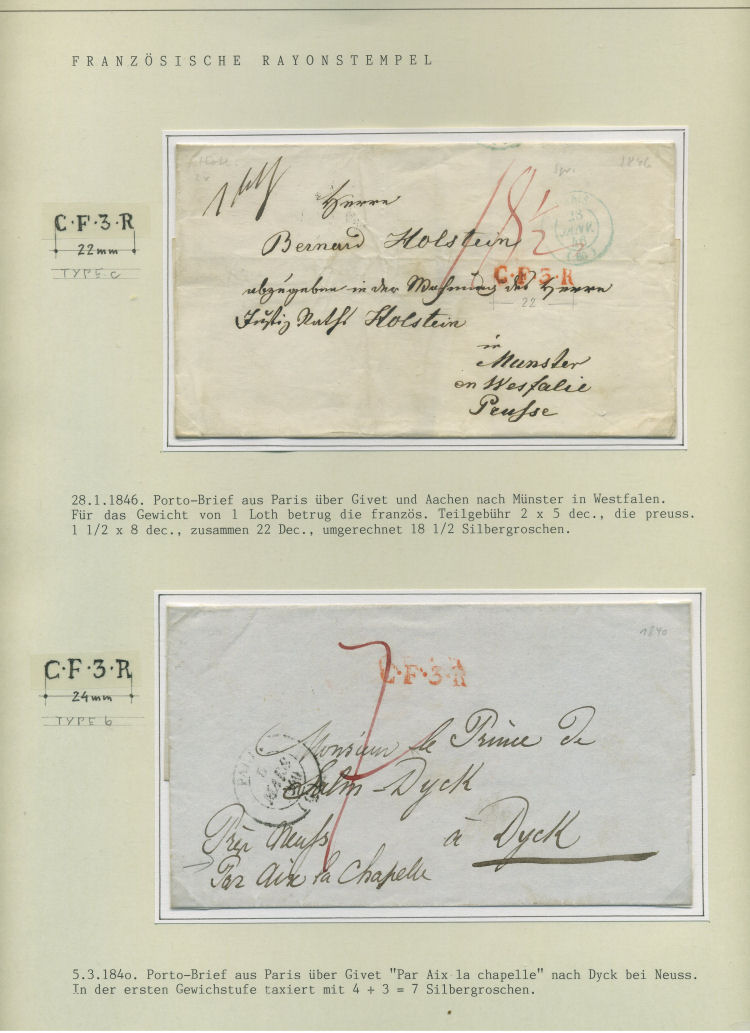 FRANZÖSISCHE RAYONSTEMPEL
C·F·3·R
22mm
TYPE C
1846
18 1/2
Herrn
Bernard Holstein
C·F·3·R
22
abzugeben in der Wohnung des Herrn
Justiz Raths Holstein
in
Munster
en Wesfalie
Preusse
28.1.1846. Porto-Brief aus Paris über Givet und Aachen nach Münster in Westfalen.
Für das Gewicht von 1 Loth betrug die französ. Teilgebühr 2 x 5 dec., die preuss.
1 1/2 x 8 dec., zusammen 22 Dec., umgerechnet 18 1/2 Silbergroschen.
C·F·3·R
24mm
TYPE b
1840
7
C·F·3·R
Monsieur le Prince de
Salm-Dyck
à Dyck
Près Neuss
Par Aix la Chapelle
5.3.184o. Porto-Brief aus Paris über Givet "Par Aix la chapelle" nach Dyck bei Neuss.
In der ersten Gewichstufe taxiert mit 4 + 3 = 7 Silbergroschen.